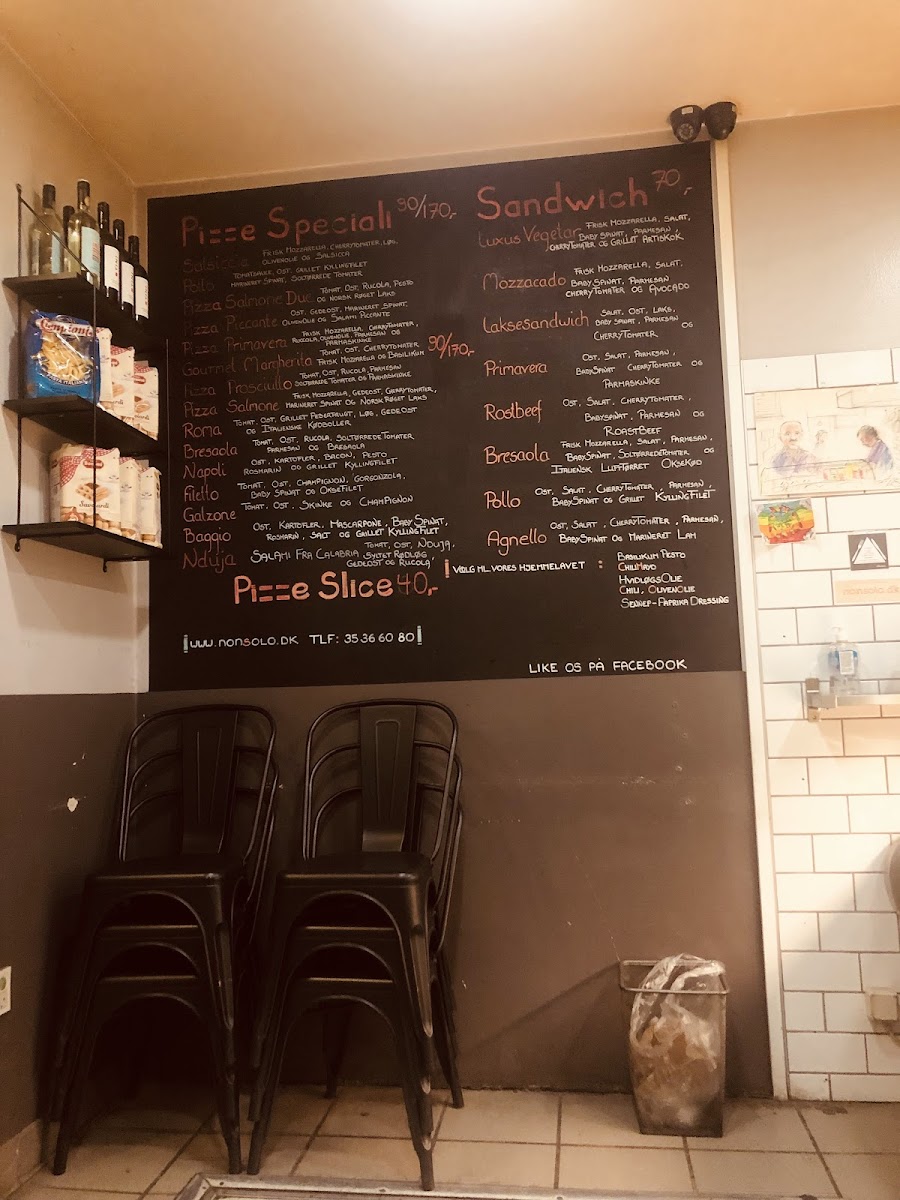 Pizze Speciali 90/170,-
Salsiccia Frisk Mozzarella, Cherrytomater, Løg,
Olivenolie og Salsicca
Pollo Tomatbakke, Ost, Grillet Kyllingfilet
Marineret Spinat, Soltørrede Tomater
Pizza Salmone Due Tomat, Ost, Rucola, Pesto
og Norsk Røget Laks
Pizza Piccante Ost, Gedeost, Marineret Spinat,
Olivenolie og Salami Piccante
Pizza Primavera Frisk Mozzarella, Cherrytomater,
Ruccola, Olivenolie, Parmesan og
Parmaskinke
Gourmel Margherita Tomat, Ost, Cherrytomater
Frisk Mozzarella og Basilikum 90/170,-
Pizza Prosciullo Tomat, Ost, Rucola, Parmesan
Soltørrede Tomater og Parmaskinke
Pizza Salmone Frisk Mozzarella, Gedeost, Cherrytomater,
Marineret Spinat og Norsk Røget Laks
Roma Tomat, Ost, Grillet Peberfrugt, Løg, Gedeost
og Italienske Kødboller
Bresaola Tomat, Ost, Rucola, Soltørrede Tomater
Parmesan og Bresaola
Napoli Ost, Kartofler, Bacon, Pesto
Rosmarin og Grillet Kyllingfilet
Filetto Tomat, Ost, Champignon, Gorgonzola,
Baby Spinat og Oksefilet
Galzone Tomat, Ost, Skinke og Champignon
Baggio Ost, Kartofler, Mascarpone, Baby Spinat,
Rosmarin, Salt og Grillet Kyllingfilet
Nduja Salami Fra Calabria Tomat, Ost, Nduja,
Syltet Rødløg,
Gedeost og Rucola
Pizze Slice 40,-
www.nonsolo.dk Tlf: 35 36 60 80
Sandwich 70,-
Luxus Vegetar Frisk Mozzarella, Salat,
Baby Spinat, Parmesan,
Cherrytomater og Grillet Artiskok
Mozzacado Frisk Mozzarella, Salat,
Baby Spinat, Parmesan
Cherrytomater og Avocado
Laksesandwich Salat, Ost, Laks,
Baby Spinat, Parmesan og
Cherrytomater
Primavera Ost, Salat, Parmesan,
Baby Spinat Cherrytomater og
Parmaskinke
Rostbeef Ost, Salat, Cherrytomater,
Babyspinat, Parmesan og
Roastbeef
Bresaola Frisk Mozzarella, Salat, Parmesan,
Baby Spinat, Soltørredetomater og
Italiensk Lufttørret Oksekød
Pollo Ost, Salat, Cherrytomater, Parmesan,
Baby Spinat og Grillet Kyllingfilet
Agnello Ost, Salat, Cherrytomater, Parmesan,
Baby Spinat og Marineret Lam
! Vælg ml. vores hjemmelavet :
Basilikum Pesto
ChiliMayo
HvidløgsOlie
Chili, OlivenOlie
Sennep-Paprika Dressing
Like os på Facebook
nonsolo.dk